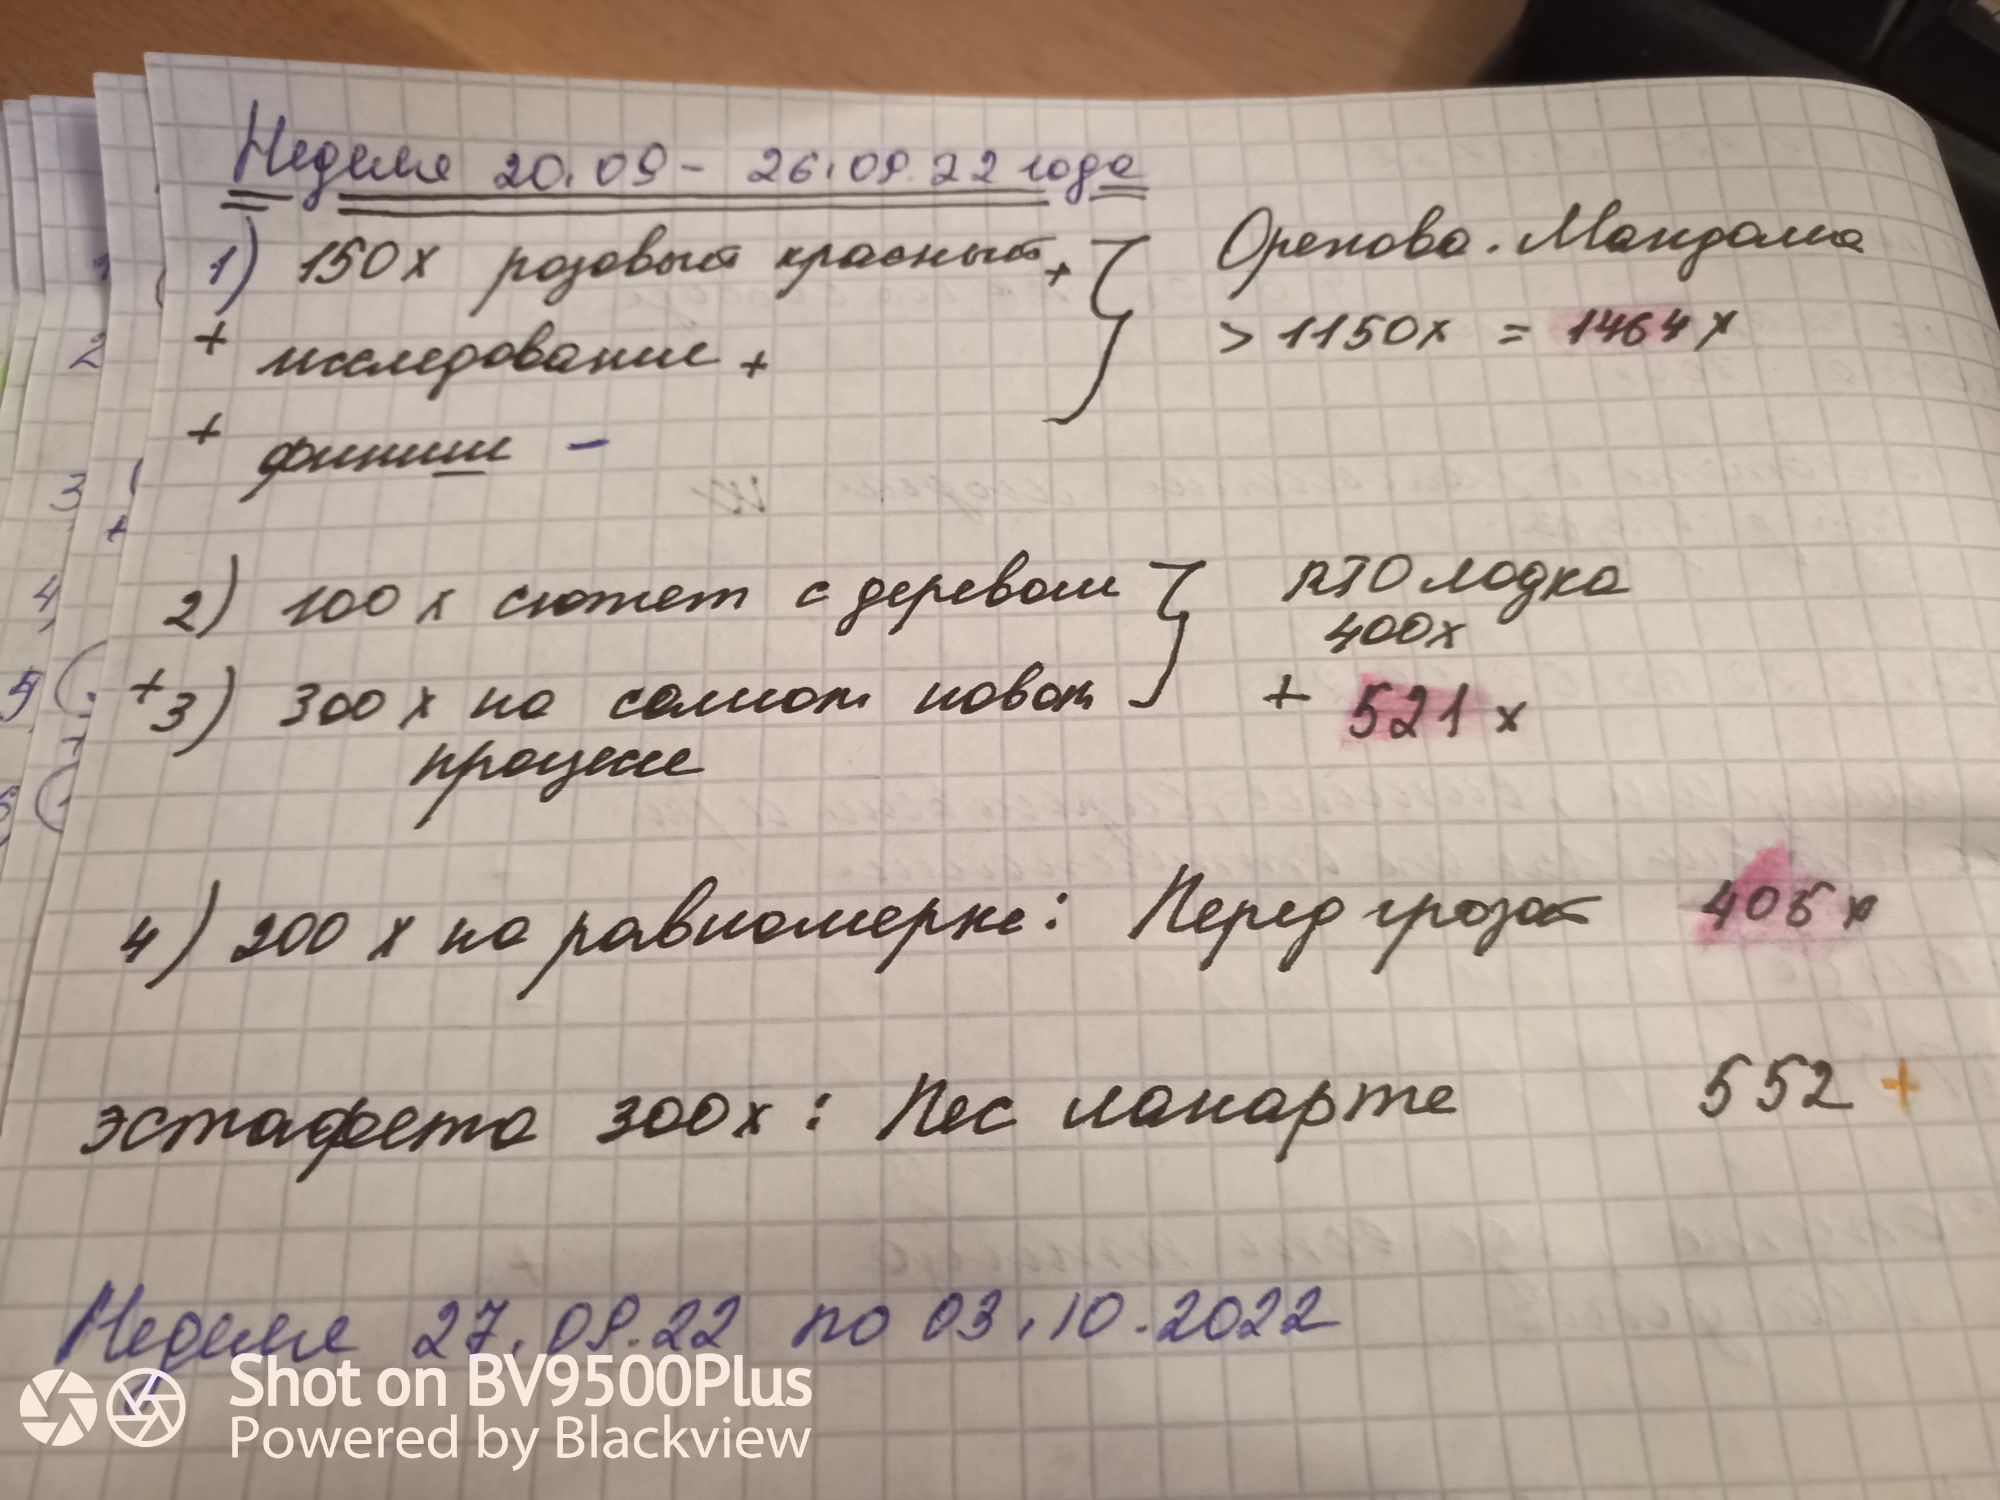 Неделя 20.09 - 26.09.22 года
1) 150х розовый красный +
+ исследование +
+ финиш -
} Оренова. Мандала
> 1150х = 1464х
2) 100х сюжет с деревом
+3) 300х на самом новом
процессе
} ПТО лодка
400х
+ 521х
4) 200х на равномерке: Перед грозой 405х
эстафета 300х: Пес ланарте 552 +
Неделя 27.09.22 по 03.10.2022
Shot on BV9500Plus
Powered by Blackview